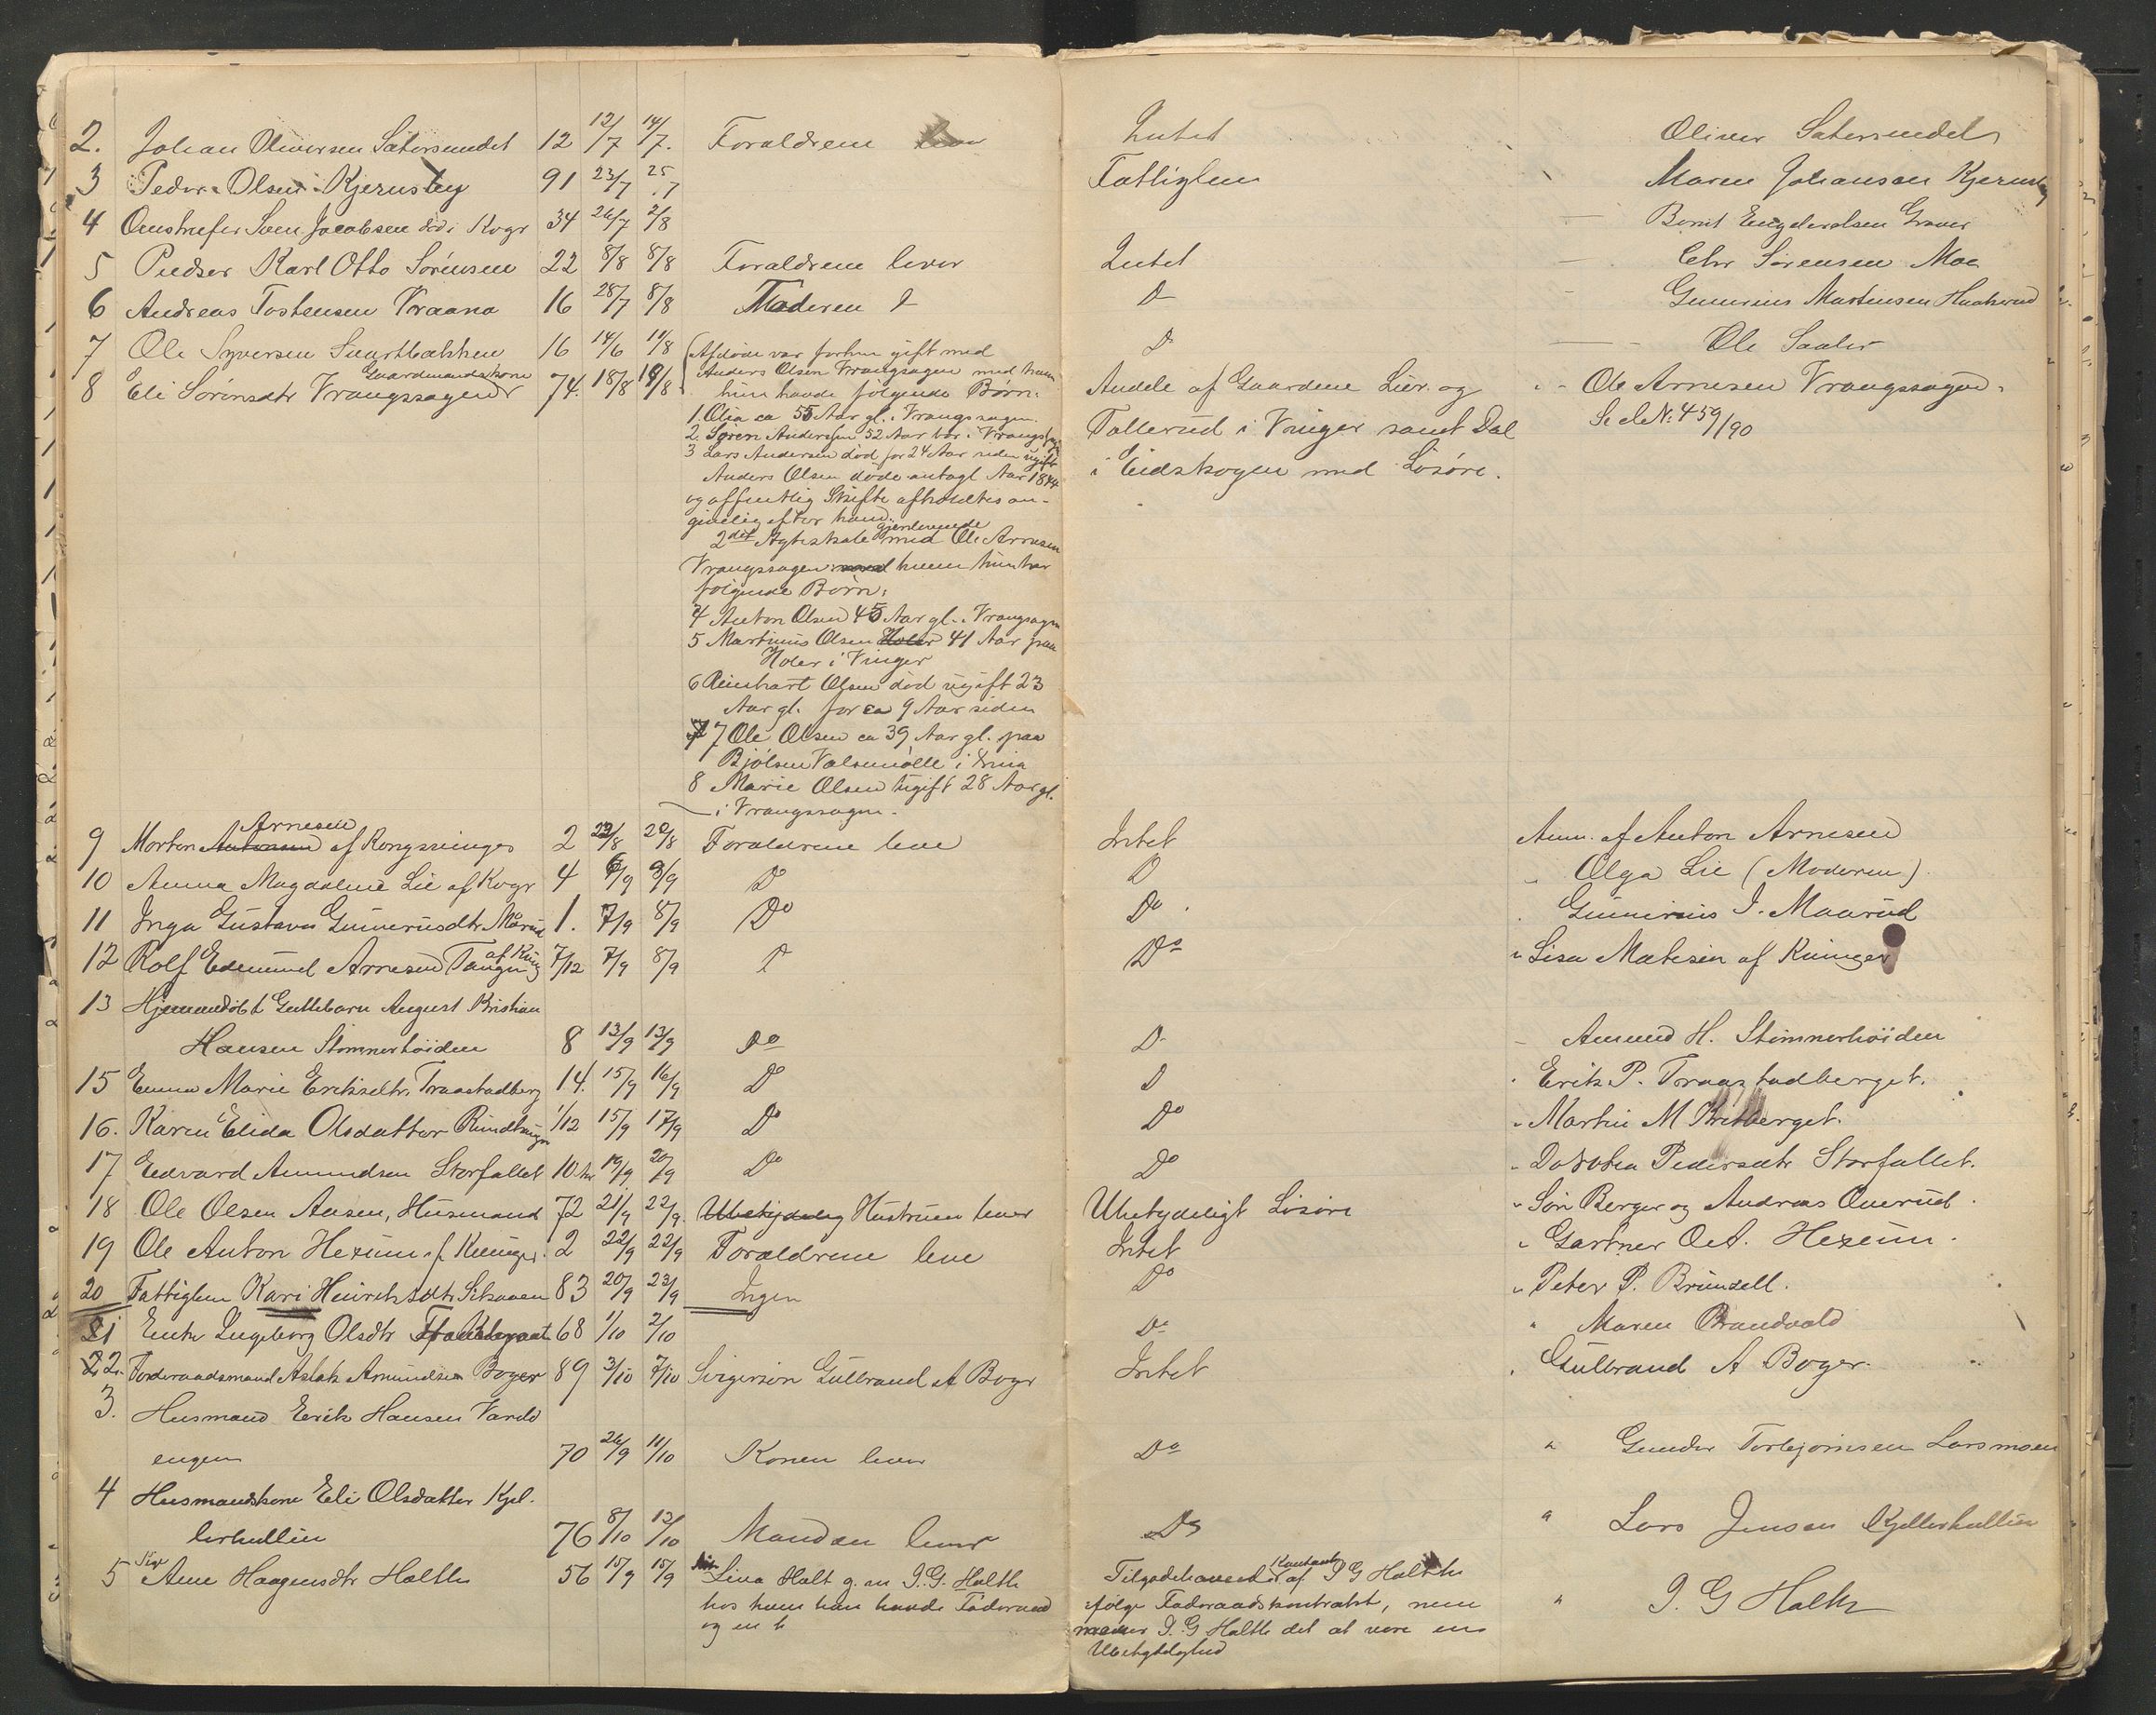 2. Johan Oliversen Sætersmidet 12 12/7 14/7. Forældrene Intet Oliver Sætersmidet
3 Peder Olsen Kjernsby 91 23/7 25/7 Fattiglem Maren Johansen Kjernsby
4 Sven Jacobsen død i Kvgr 34 26/7 2/8 — Bernt Engebretsen Graver
5 Pudser Karl Otto Sørensen 22 8/8 8/8 Forældrene lever Intet — Chr Sørensen Moe
6 Andreas Tostensen Vraana 16 28/7 8/8 Moderen D D — Gunerius Martinsen Haakerud
7 Ole Syversen Svartbækken 16 14/6 11/8 D — Ole Sæter
8 Eli Sørensdtr Vrangssagen Gaardmandskone 74. 18/8 18/8 Afdøde var forhen gift med
Anders Olsen Vrangsagen med ham
hun havde følgende Børn:
1. Olia ca 55 Aar gl. i Vrangssagen
2. Søren Andersen 52 Aar bor i Vrangssagen
3 Lars Andersen død for 24 Aar siden ugift
Anders Olsen døde antagl Aar 1844
og offentlig Skifte afholdtes an-
givelig efter ham.
2det Ægteskab gjenlevende med Ole Arnesen
Vrangssagen med hvem hun har
følgende Børn:
4 Anton Olsen 45 Aar gl. i Vrangsagen
5 Martinus Olsen Holer 41 Aar paa
Holer i Vinger
6 Reinhart Olsen død ugift 23
Aar gl. for ca 9 Aar siden
7 Ole Olsen ca 39 Aar gl. paa
Bjølsen Valsemølle i Xnia
8 Marie Olsen Ugift 28 Aar gl.
i Vrangssagen.
Andele af Gaardene Lier og
Tallerud i Vinger samt Dal
i Eidskogen med Løsøre.
Ole Arnesen Vrangssagen.
Se d No: 459/90
9 Morten Antonsen Arnesen af Kongsvinger 2 22/8 22/8 Forældrene leve Intet Anm. af Anton Arnesen
10 Anna Magdalene Lie af Kvgr 4 6/9 8/9 Do D " Olga Lie (Moderen).
11 Inga Gustava Gunerusdtr Mørud 1. 7/9 8/9 Do Do . Gunerius J. Maarud
12 Rolf Edmund Arnesen Tangen af Kving 7/12 7/9 8/9 D Do " Lisa Mathisen af Kvinger
13 Hjemmedøbt Guttebarn August Kristian
Hansen Stømnerhøiden 8 13/9 13/9 Do D - Amund H. Stømnerhøiden
15 Emma Marie Eriksdtr. Traastadberg 14. 15/9 16/9 Do D . Erik P. Traastadberget.
16. Karen Elida Olsdatter Rundhaugen 1/12 15/9 17/9 Do Do " Martin M
17 Edvard Amundsen Storfallet 10. 19/9 20/9 Do Do " Dorthea Pedersdtr Storfallet.
18 Ole Olsen Aasen, Husmand 72 21/9 22/9. Ubetydelig Hustruen lever Ubetydeligt Løsøre " Søn Berger og Andreas Ouerud.
19 Ole Anton Hexum af Kvinger. 2 22/9 22/9 Forældrene leve Intet " Gartner O. A. Hexum.
20 Fattiglem Kari Henriksdtr Sikaaen 83 20/9 23/9 Ingen Do " Peter P. Brundell.
21 Enke Ingeborg Olsdtr 68 1/10 2/10 Do " Maren Brandvold
22. Føderaadsmand Aslak Amundsen Boger 89 3/10 7/10 Svigersøn Gulbrand A Boger Intet . Gulbrand A Boger.
3. Husmand Erik Hansen Vardo
engen 70 26/9 11/10 Konen lever Do " Gunder Torbjørnsen Larsmoen
4 Husmandskone Eli Olsdatter Kjel-
lerhullin 76 8/10 13/10 Manden lever Do " Lars Jensen Kjellerhullin
5 Ane Haagensdtr Holth 56 15/9 15/9 Lina Holt g. m J. G. Holth
hos hvem han havde Føderaad
og en
Tilgodehavende Kontant af J G Holth
ifølge Føderaadskontrakt, men
mener J. G Holth det at være en
Ubetydelighed
" J. G Holth